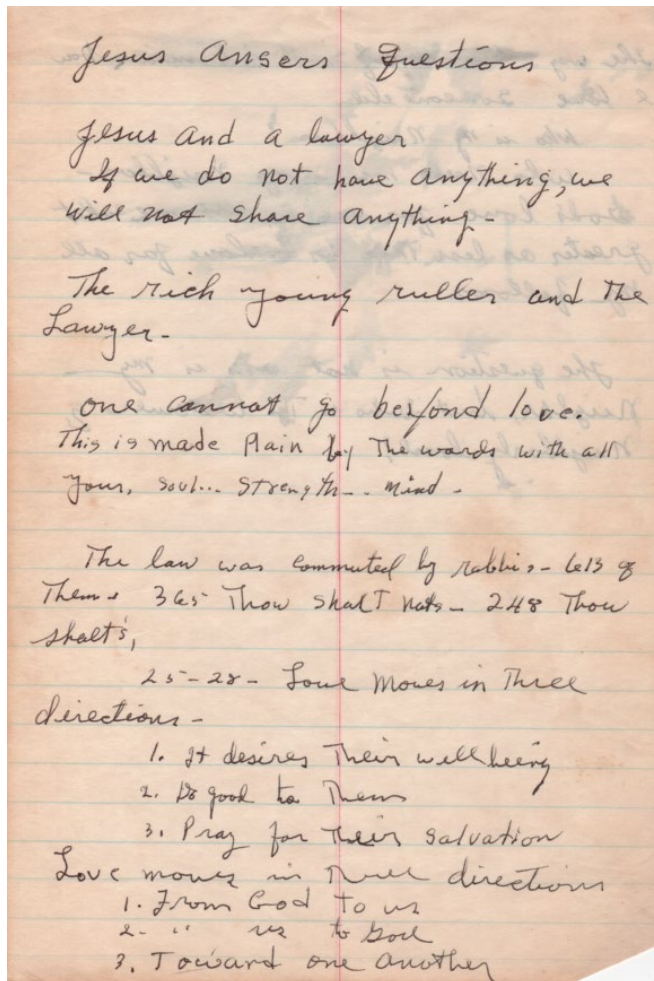 Jesus Ansers Questions
Jesus and a lawyer
If we do not have anything, we
will not share anything-
The rich young ruller and The
Lawyer-
one cannot go beyond love.
This is made Plain by The words with all
your, soul... strength... mind-
The law was commuted by rabbis- 613 of
Them. 365 Thou shalT nots- 248 Thou
shalt's,
25-28- Love moves in Three
directions-
1. It desires Their well being
2. Do good to Them
3. Pray for Their salvation
Love moves in Three directions
1. From God To us
2- " us to God
3. Toward one another